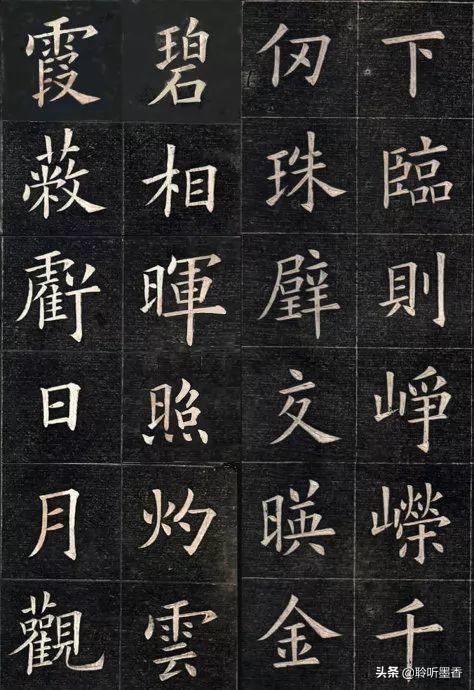 下臨則崢嶸千
仞珠壁交暎金
碧相暉照灼雲
霞蔽虧日月觀
头条 @聆听墨香